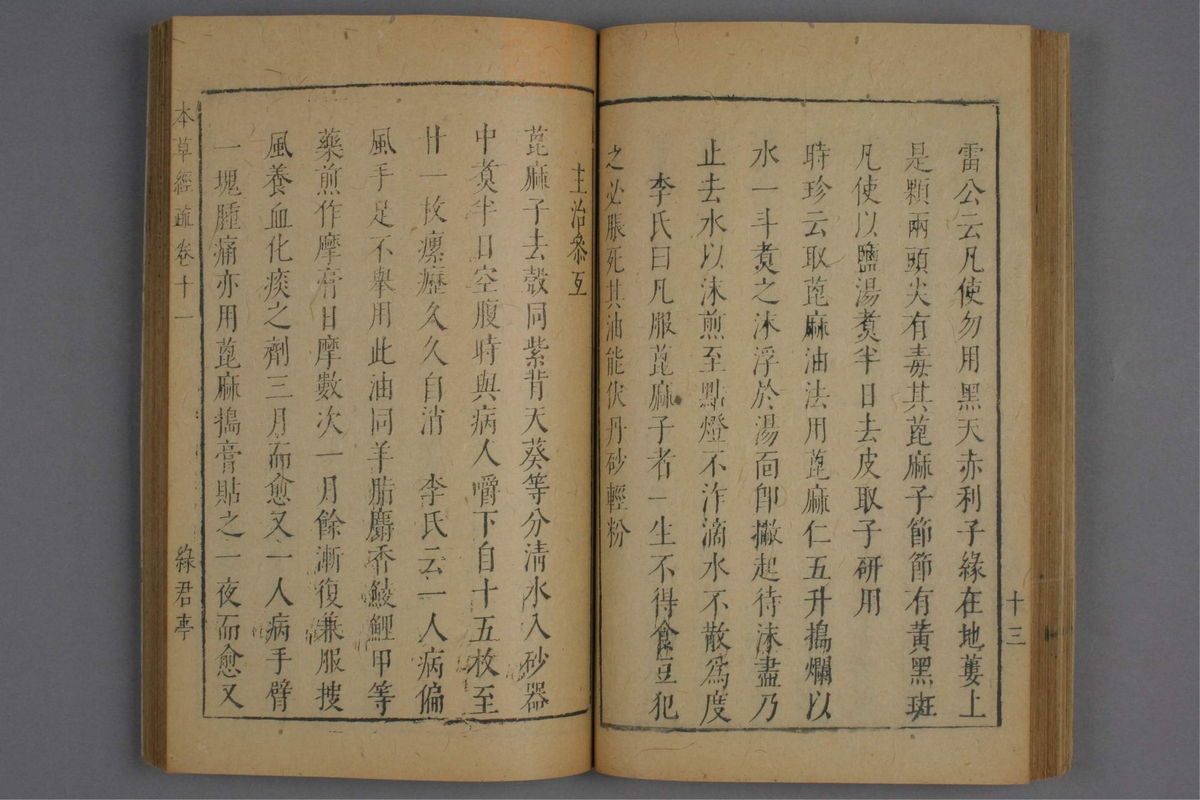 十三
雷公云凡使勿用黑天赤利子緣在地蔞上
是顆兩頭尖有毒其萞麻子節節有黃黑斑
凡使以鹽湯煑半日去皮取子研用
時珍云取萞麻油法用萞麻仁五升搗爛以
水一斗煑之沫浮於湯面卽撇起待沫盡乃
止去水以沫煎至點燈不泎滴水不散爲度
李氏曰凡服萞麻子者一生不得食豆犯
之必脹死其油能伏丹砂輕粉
主治叅互
萞麻子去殼同紫背天葵等分清水入砂器
中煑半日空腹時與病人嚼下自十五枚至
廿一枚瘰癧久久自消　李氏云一人病偏
風手足不舉用此油同羊脂麝香鯪鯉甲等
藥煎作摩膏日摩數次一月餘漸復兼服搜
風養血化痰之劑三月而愈又一人病手臂
一塊腫痛亦用萞麻搗膏貼之一夜而愈又
本草經疏卷十一
綠君亭